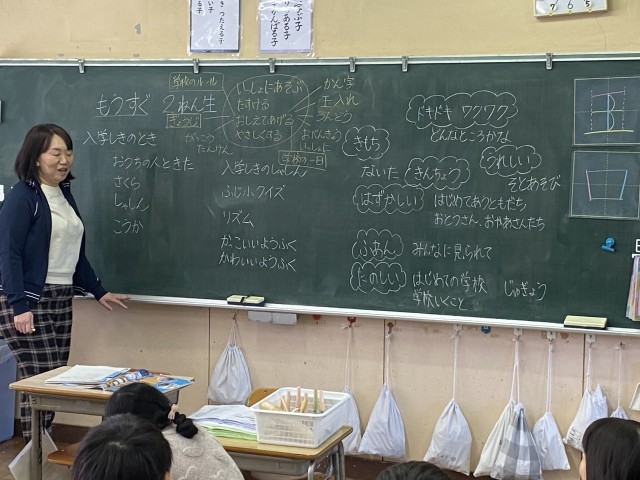 つたえる子
学ぶ子
がんばる子
7 6 5
もうすぐ 2ねん生
学校のルール
ぎょうじ
がっこう
たんけん
いっしょにあそぶ
たすける
おしえてあげる
やさしくする
かん字
玉入れ
うんどう
おべんきょう
いっしょに
学校の一日
入学しきのとき
おうちの人ときた
さくら
しゃしん
こうか
入学しきのしゃしん
ふじ小クイズ
リズム
かっこいいようふく
かわいいようふく
ドキドキ ワクワク
どんなところかな
きもち
ないた
きんちょう
うれしい
そとあそび
はずかしい
はじめてありともだち
おとうさん、おかあさんたち
ふあん
みんなに見られて
たのしい
はじめての学校
学校いくこと
じゅぎょう